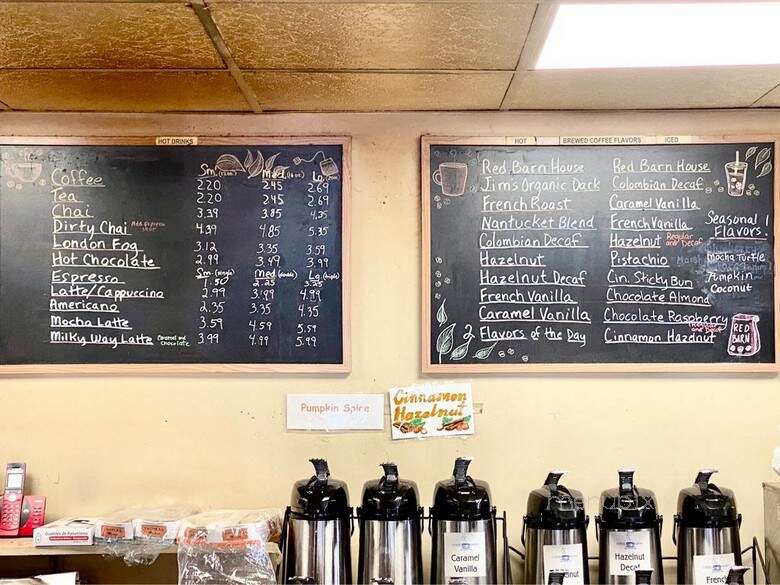 HOT DRINKS
Sm. (12oz) Med. (16oz) Lg. (20oz)
Coffee 2.20 2.45 2.69
Tea 2.20 2.45 2.69
Chai 3.39 3.85 4.25
Dirty Chai Add Espresso shot 4.39 4.85 5.35
London Fog 3.12 3.35 3.59
Hot Chocolate 2.99 3.49 3.99
Sm. (single) Med. (double) Lg. (triple)
Espresso 1.50 2.25 3.25
Latte/Cappuccino 2.99 3.99 4.99
Americano 2.35 3.35 4.35
Mocha Latte 3.59 4.59 5.59
Milky Way Latte Caramel and Chocolate 3.99 4.99 5.99
HOT BREWED COFFEE FLAVORS ICED
Red Barn House
Jim's Organic Dark
French Roast
Nantucket Blend
Colombian Decaf
Hazelnut
Hazelnut Decaf
French Vanilla
Caramel Vanilla
2 Flavors of the Day
Red Barn House
Colombian Decaf
Caramel Vanilla
French Vanilla
Hazelnut Regular and Decaf
Pistachio
Cin. Sticky Bun
Chocolate Almond
Chocolate Raspberry
Regular and Decaf
Cinnamon Hazelnut
Seasonal
Flavors:
Mocha Turtle
Pumpkin
Coconut
RED
BARN
Pumpkin Spice
Cinnamon
Hazelnut
Caramel
Vanilla
Hazelnut
Decaf
French